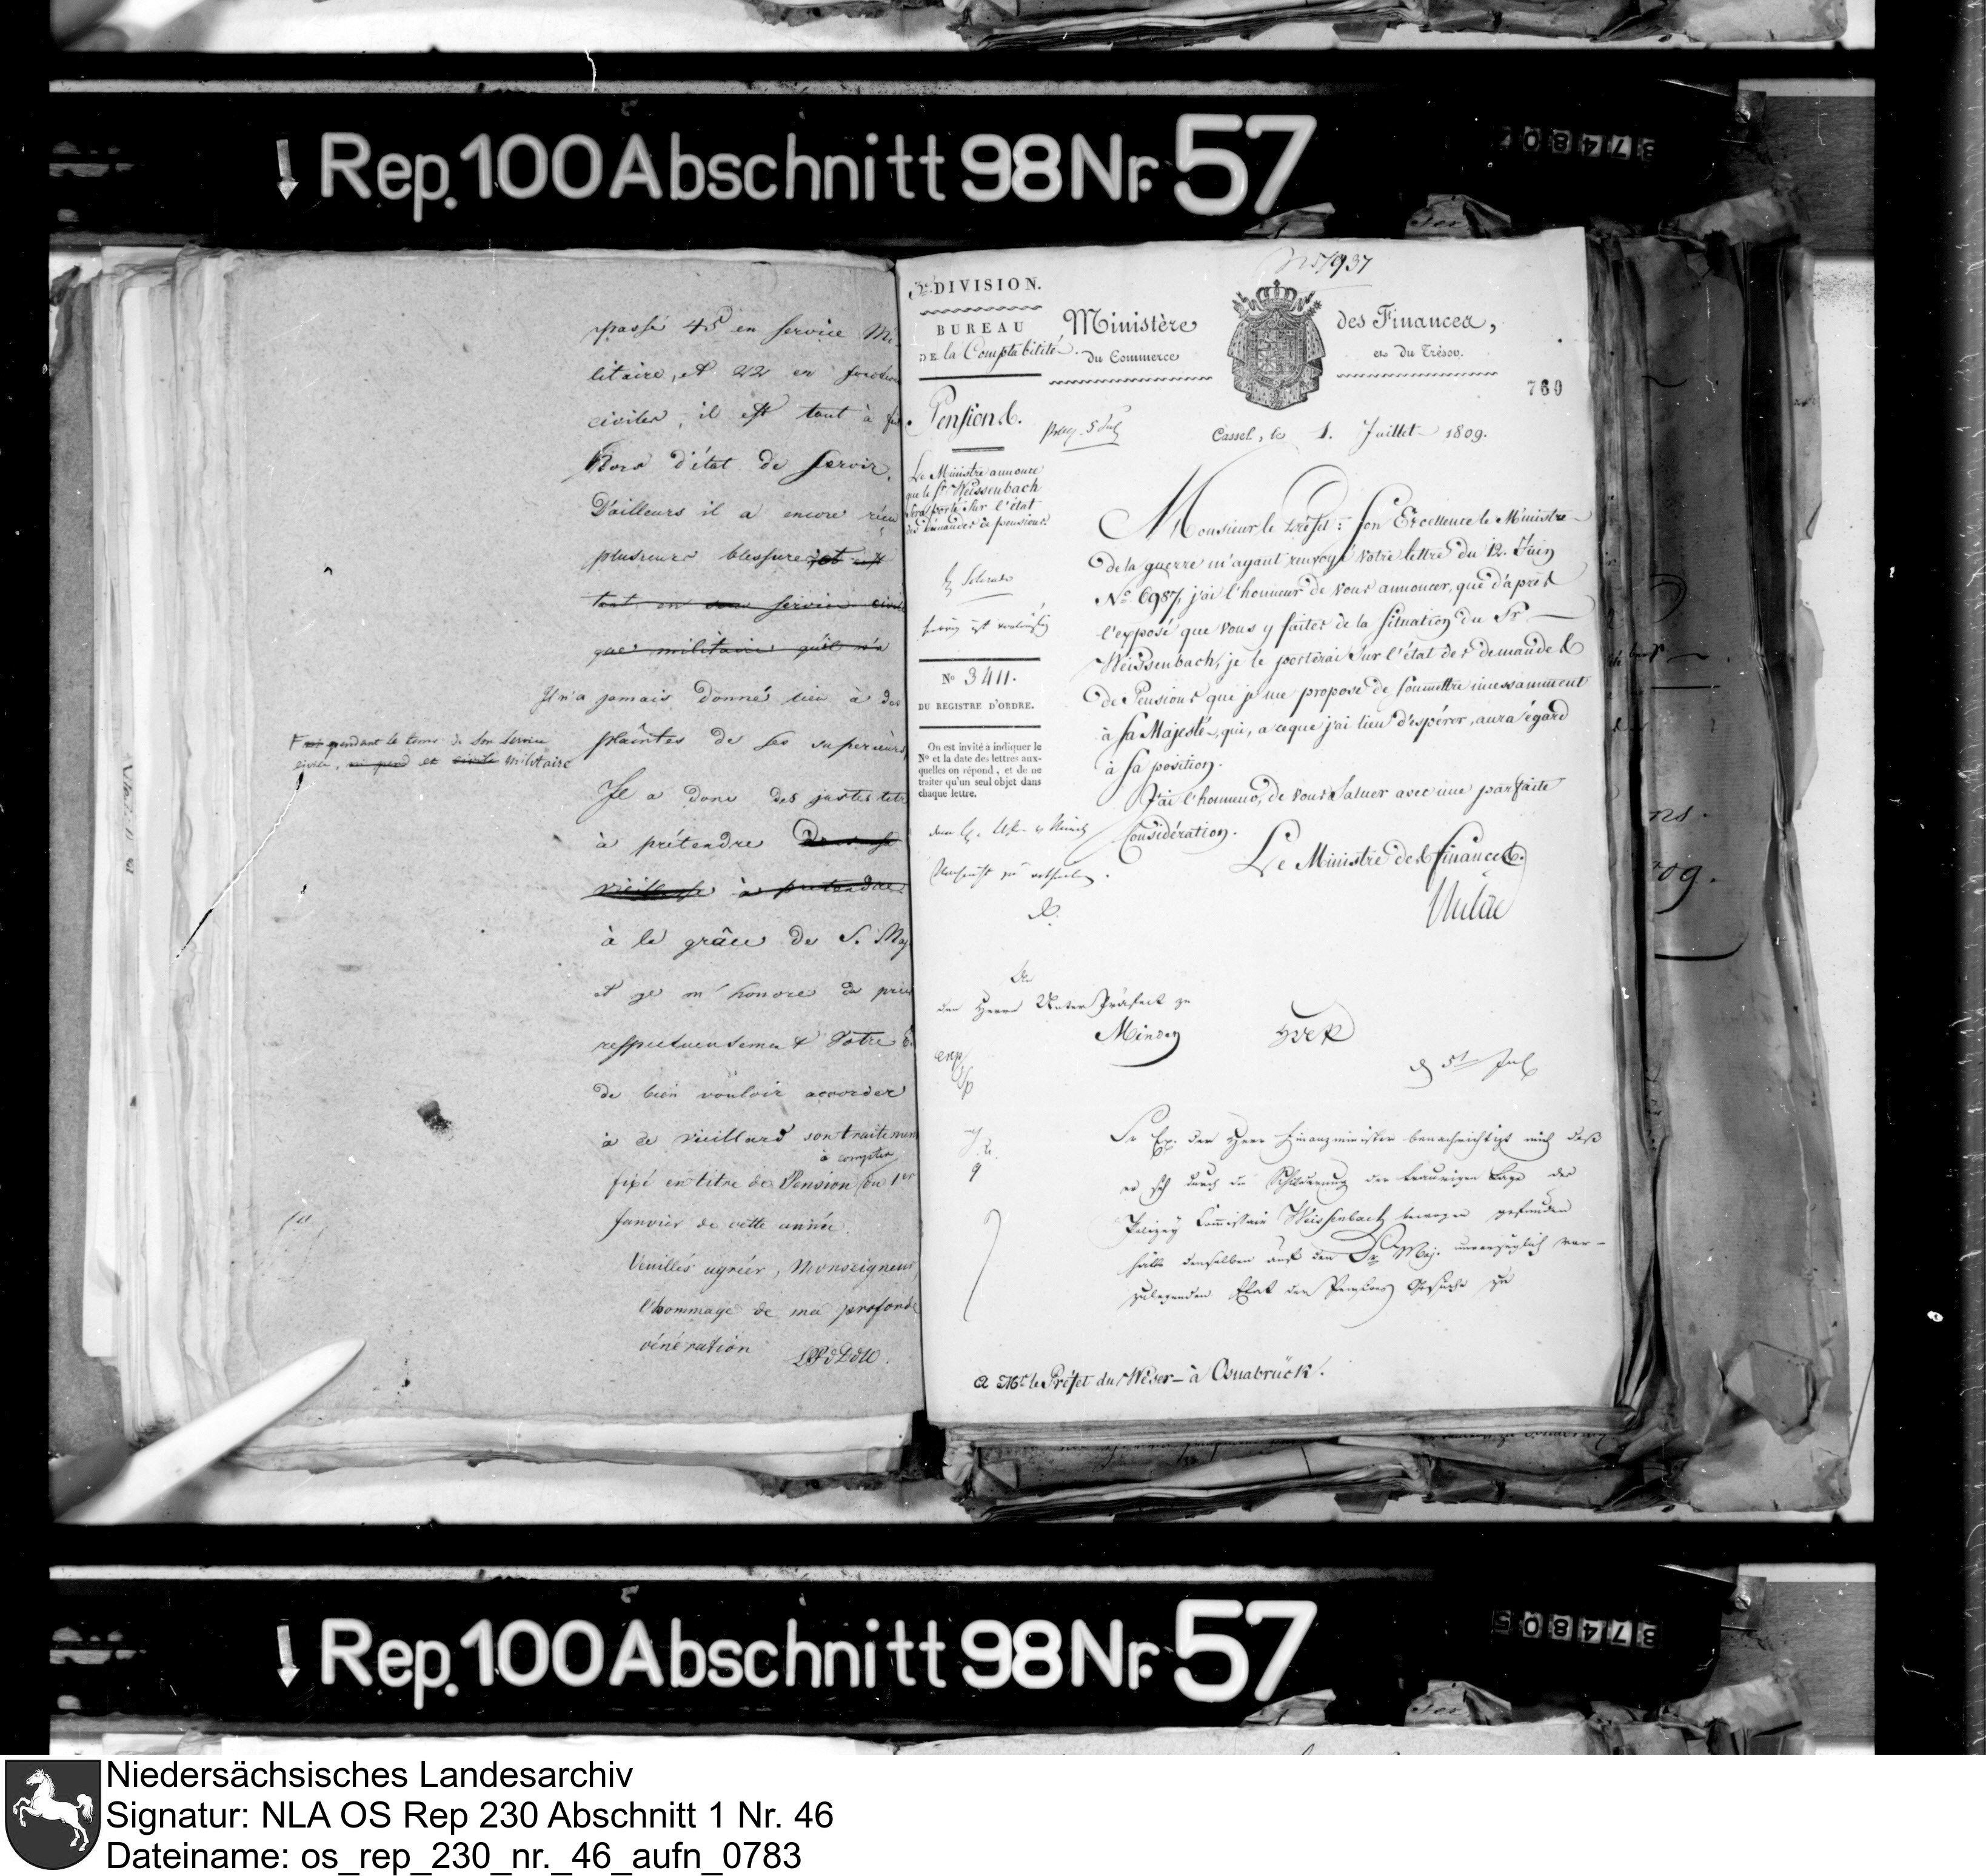 Rep. 100 Abschnitt 98 Nr. 57
passé 45 en service Mi-
litaire, et 22 en fonctions
civiles, il est tout à fait
hors d'état de servir.
D'ailleurs il a encore
plusieurs blessures et
tant en service civil
que militaire qu'il n'a
Il n'a jamais donné lieu à des
plaintes de ses superieurs
pendant le tems de son service
civile, et militaire
Il a donc des justes titres
à prétendre
vieillesse à pretendre
à la grâce de S. Maj
et je m'honore de prier
respectueusement Votre E.
de bien vouloir accorder
à ce vieillard son traitement
à compter
fixé en titre de Pension du 1er
Janvier de cette année.
Veuillés agréer, Monseigneur,
l'hommage de ma profonde
vénération
3e DIVISION.
BUREAU
DE la Comptabilité.
Ministère des Finances,
du Commerce et du Trésor.
760
Pensions.
Cassel, le 1. Juillet 1809.
Le Ministre annonce
que le Sr Weissenbach
sera porté sur l'état
des demandes de pensions.
Monsieur le Préfet: Son Excellence le Ministre
de la guerre m'ayant renvoyé votre lettre du 12. Juin
No 6987, j'ai l'honneur de vous annoncer, que d'après
l'exposé que vous y faites de la situation du Sr
Weissenbach, je le porterai sur l'état des demandes
de Pensions que je me propose de soumettre incessamment
à Sa Majesté, qui, a ceque j'ai lieu d'espérer, aura égard
à sa position.
J'ai l'honneur, de vous saluer avec une parfaite
Considération.
Le Ministre des finances.
No 3411.
DU REGISTRE D'ORDRE.
On est invité à indiquer le
No et la date des lettres aux-
quelles on répond, et de ne
traiter qu'un seul objet dans
chaque lettre.
An
den Herrn Unter Präfect zu
Minden
d 5t Jul
Sr Ex. der Herr Finanzminister benachrichtigt mich daß
er sich durch die Schilderung der traurigen Lage des
Polizey Commissair Weissenbach bewogen gefunden
habe denselben auf den Sr Maj. unverzüglich vor-
zulegenden Etat der Pensions Gesuche zu
A Mr. le Préfet du Weser à Osnabrück.
Rep. 100 Abschnitt 98 Nr. 57
Niedersächsisches Landesarchiv
Signatur: NLA OS Rep 230 Abschnitt 1 Nr. 46
Dateiname: os_rep_230_nr._46_aufn_0783